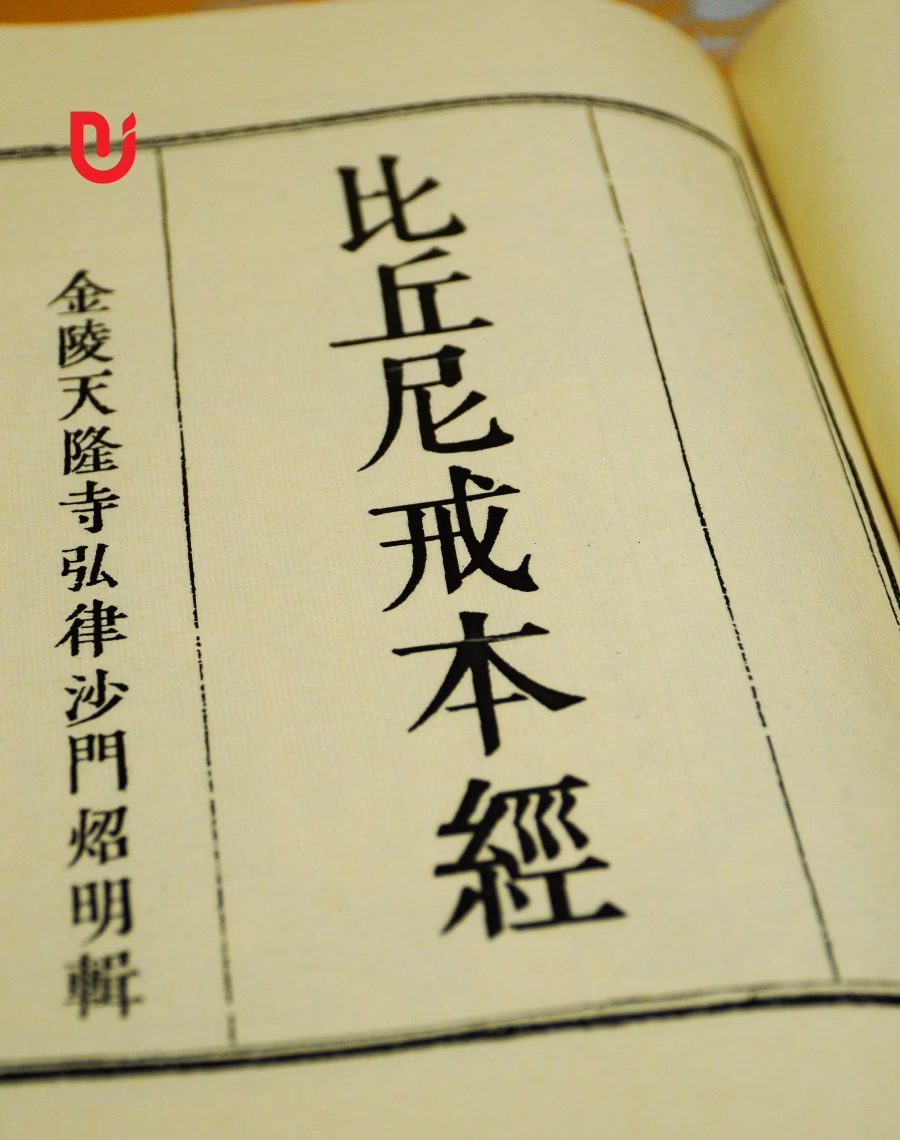 比丘尼戒本經
金陵天隆寺弘律沙門炤明輯